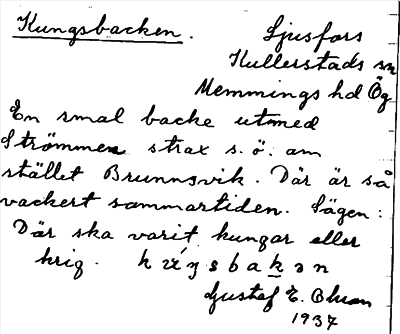 Kungsbacken. Ljusfors
Kullerstads sn
Memmings hd Ög
En smal backe utmed
Strömmen strax s.ö. om
stället Brunnsvik. Där är så
vackert sommartiden. Sägen:
Där ska varit kungar eller
krig.
Gustaf E. Bluon
1937